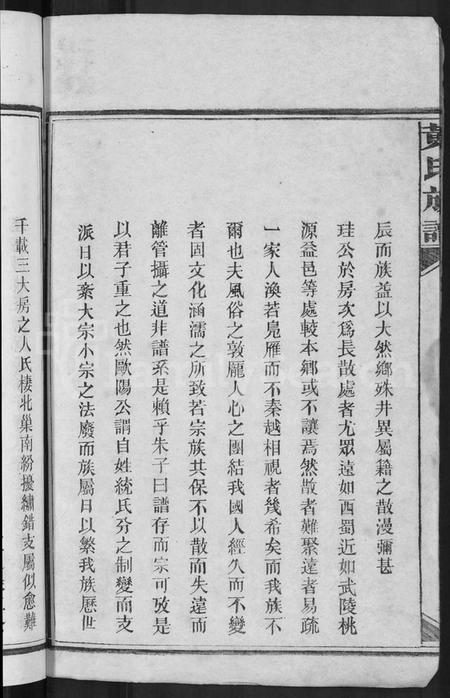 黃氏族譜
辰而族益以大然鄉殊井異屬籍之散漫彌甚
珪公於房次爲長散處者尤眾遠如西蜀近如武陵桃
源益邑等處較本鄉或不讓焉然散者難聚遠者易疏
一家人渙若鳧雁而不秦越相視者幾希矣而我族不
爾也夫風俗之敦龐人心之團結我國人經久而不變
者固文化涵濡之所致若宗族共保不以散而失遠而
離管攝之道非譜系是賴乎朱子曰譜存而宗可攷是
以君子重之也然歐陽公謂自姓統氏分之制變而支
派日以紊大宗小宗之法廢而族屬日以繁我族厯世
千載三大房之人氏棲北巢南紛擾繡錯支屬似愈難